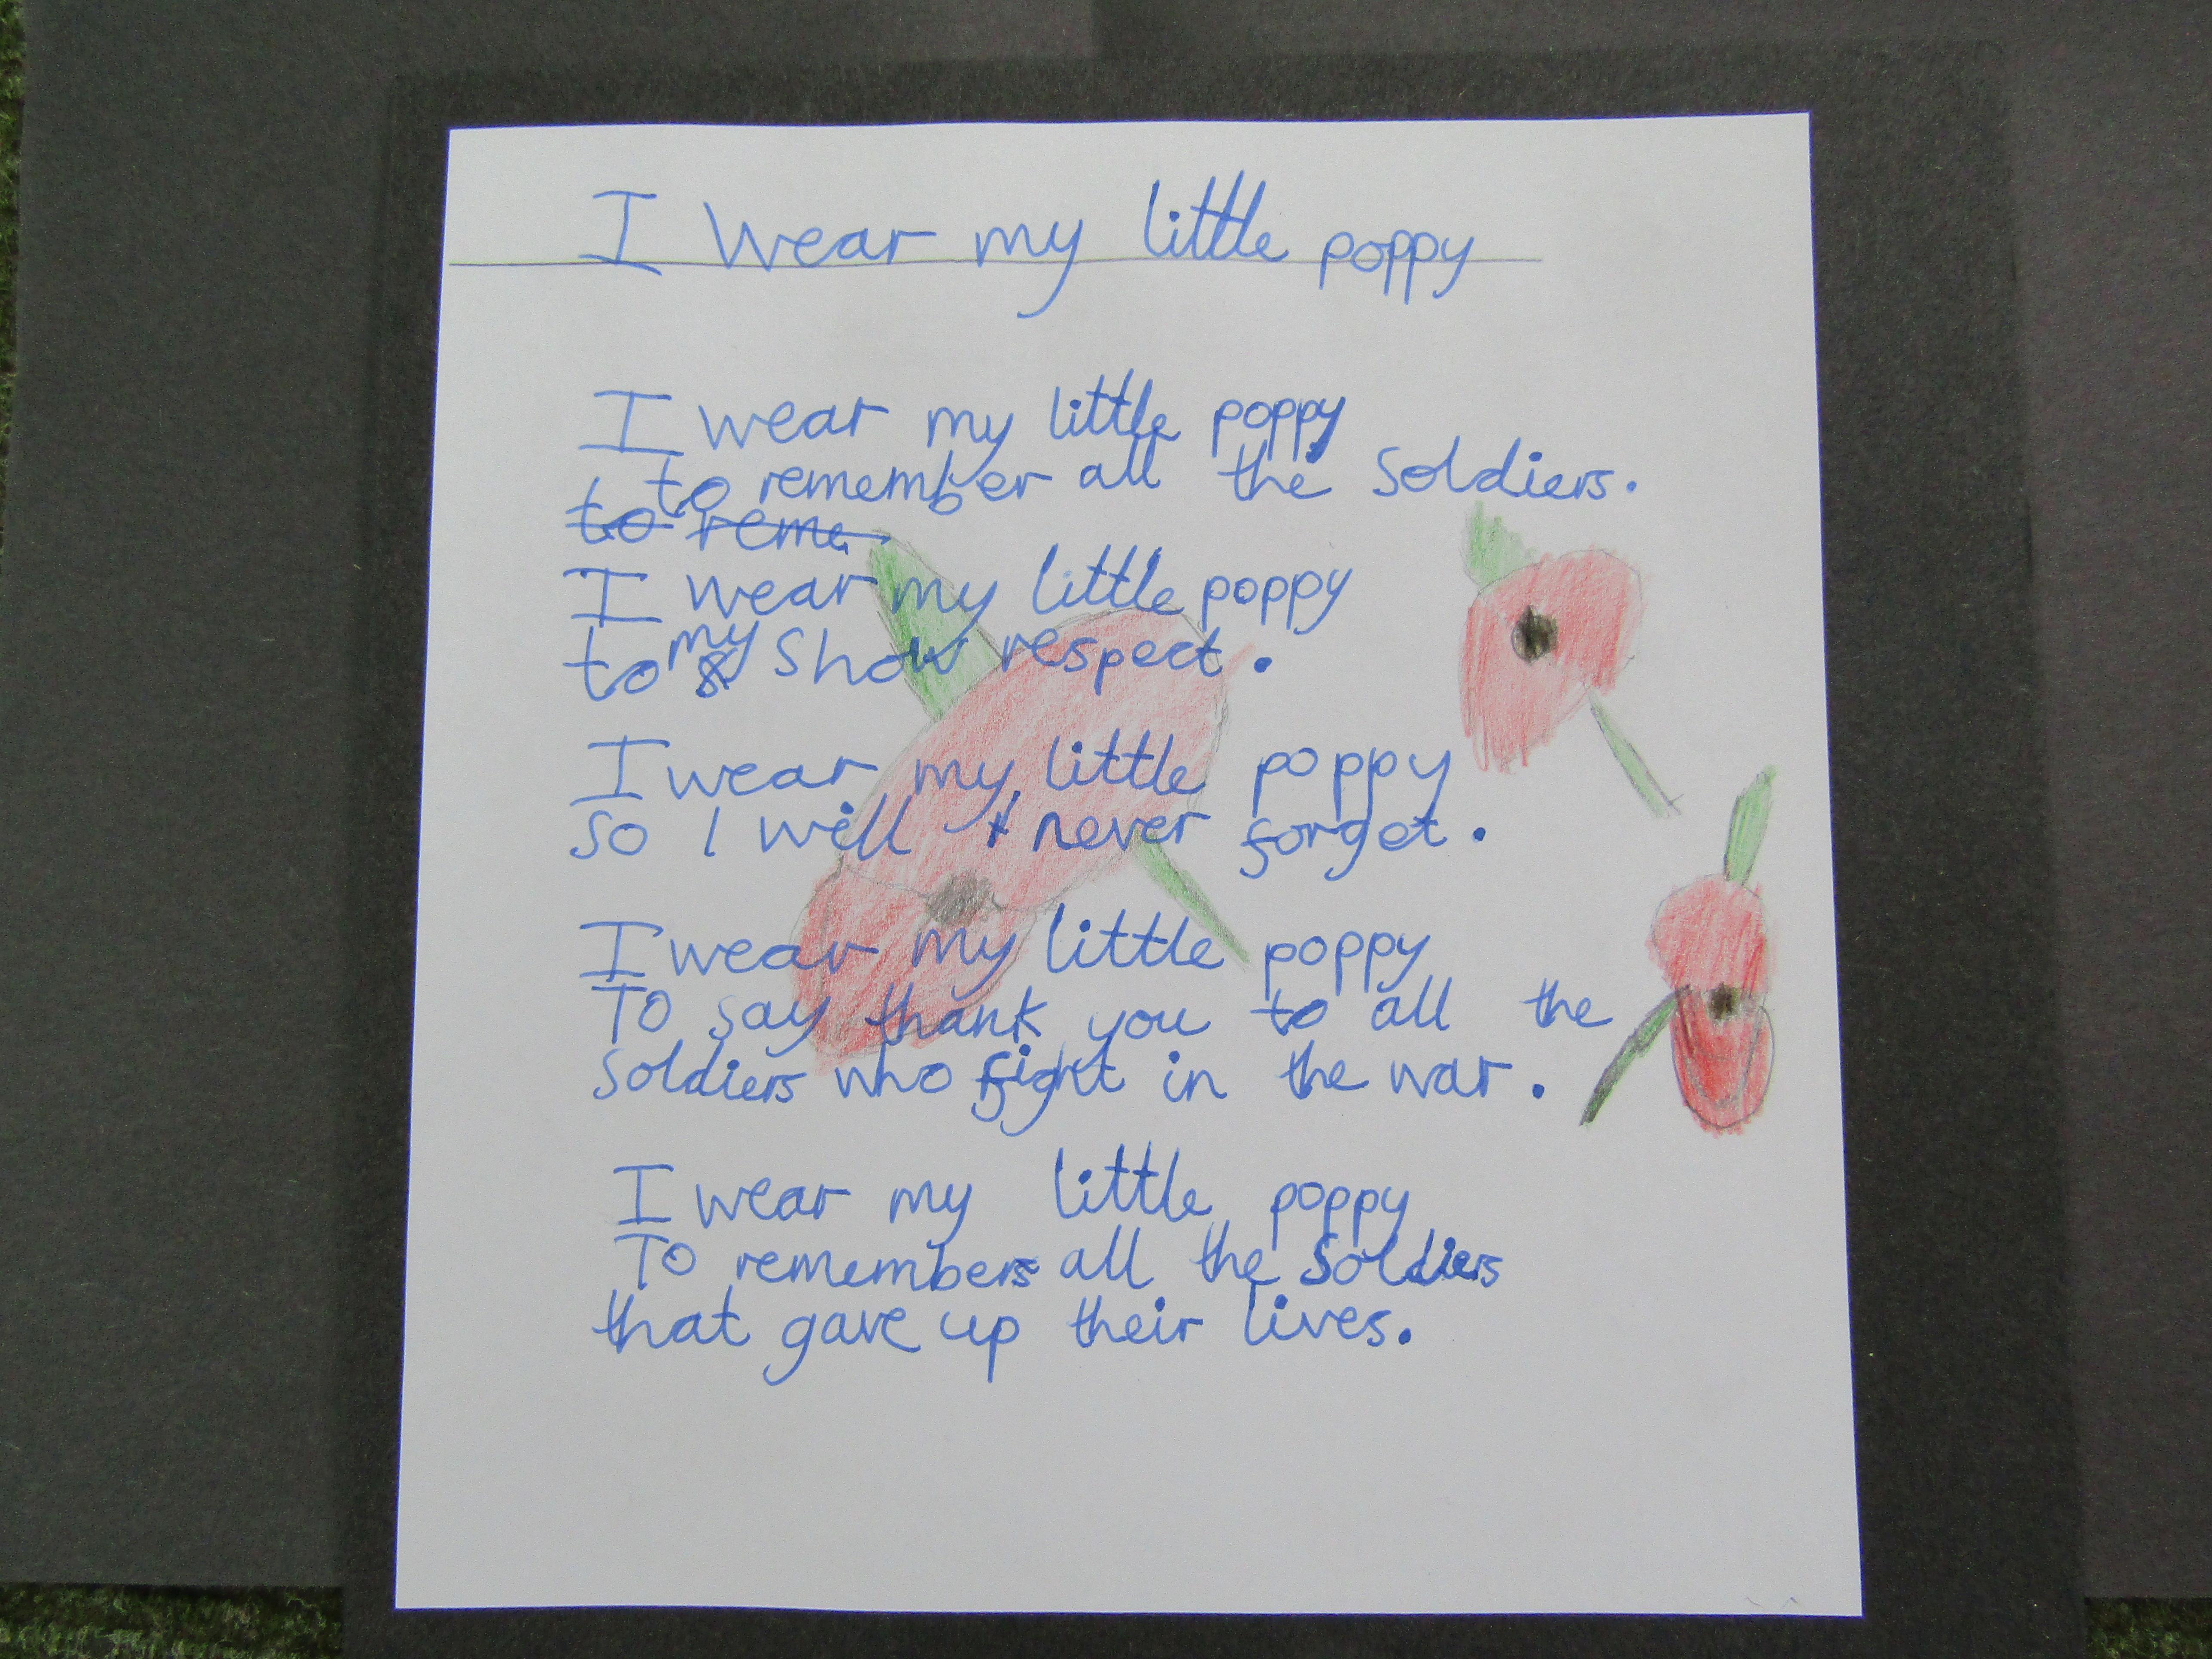 I wear my little poppy
I wear my little poppy
to remember all the soldiers.
to reme
I wear my little poppy
to my show respect.
I wear my little poppy
so I will never forget.
I wear my little poppy
To say thank you to all the
soldiers who fight in the war.
I wear my little poppy
To remembers all the soldiers
that gave up their lives.